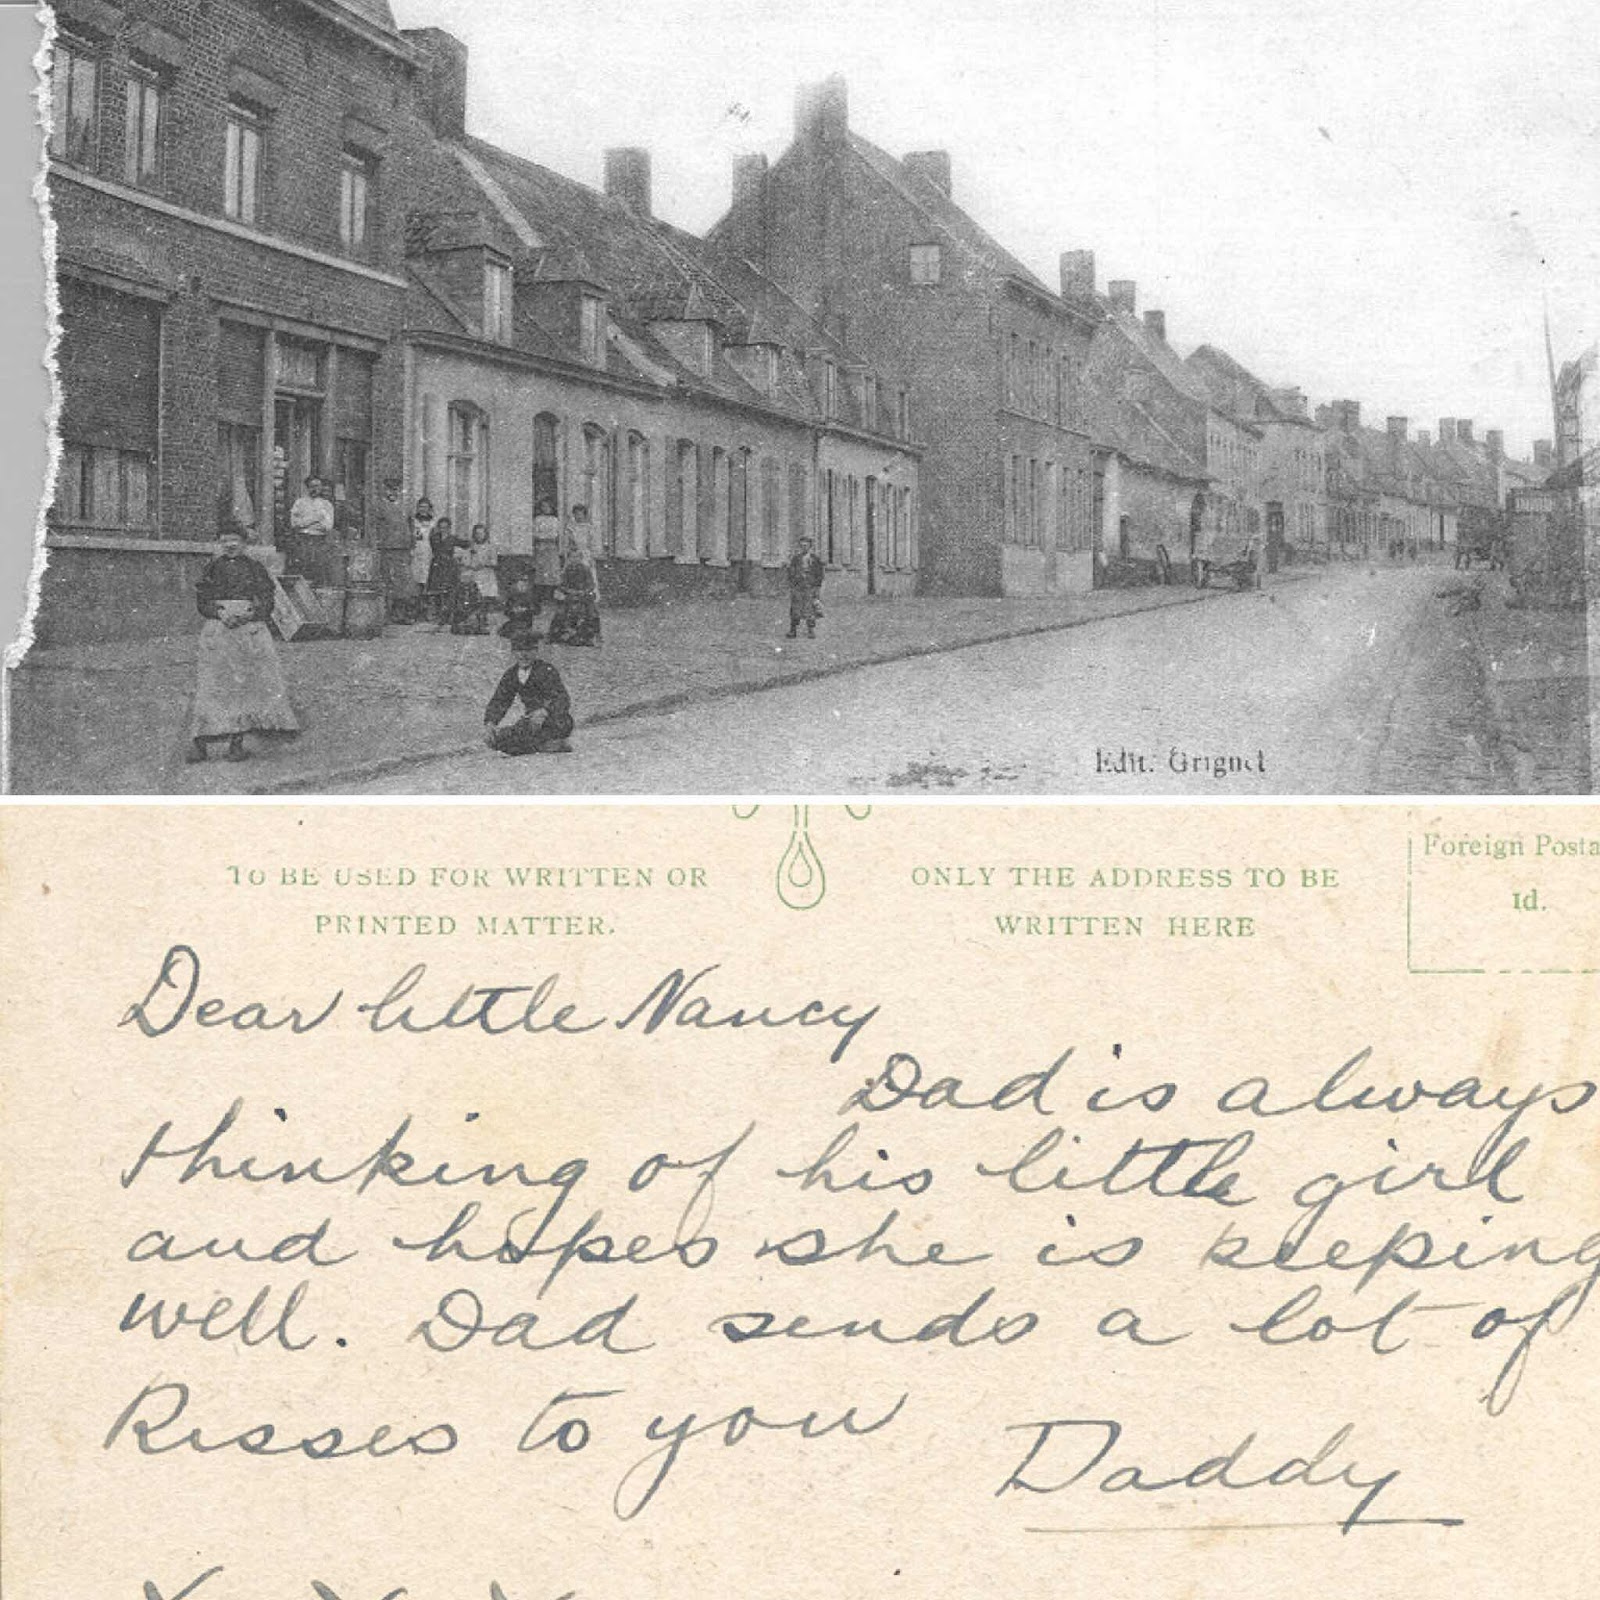 Edit. Grignet
TO BE USED FOR WRITTEN OR
PRINTED MATTER.
ONLY THE ADDRESS TO BE
WRITTEN HERE
Foreign Posta
1d.
Dear little Nancy
Dad is always
thinking of his little girl
and hopes she is keeping
well. Dad sends a lot of
Kisses to you
Daddy
X X X